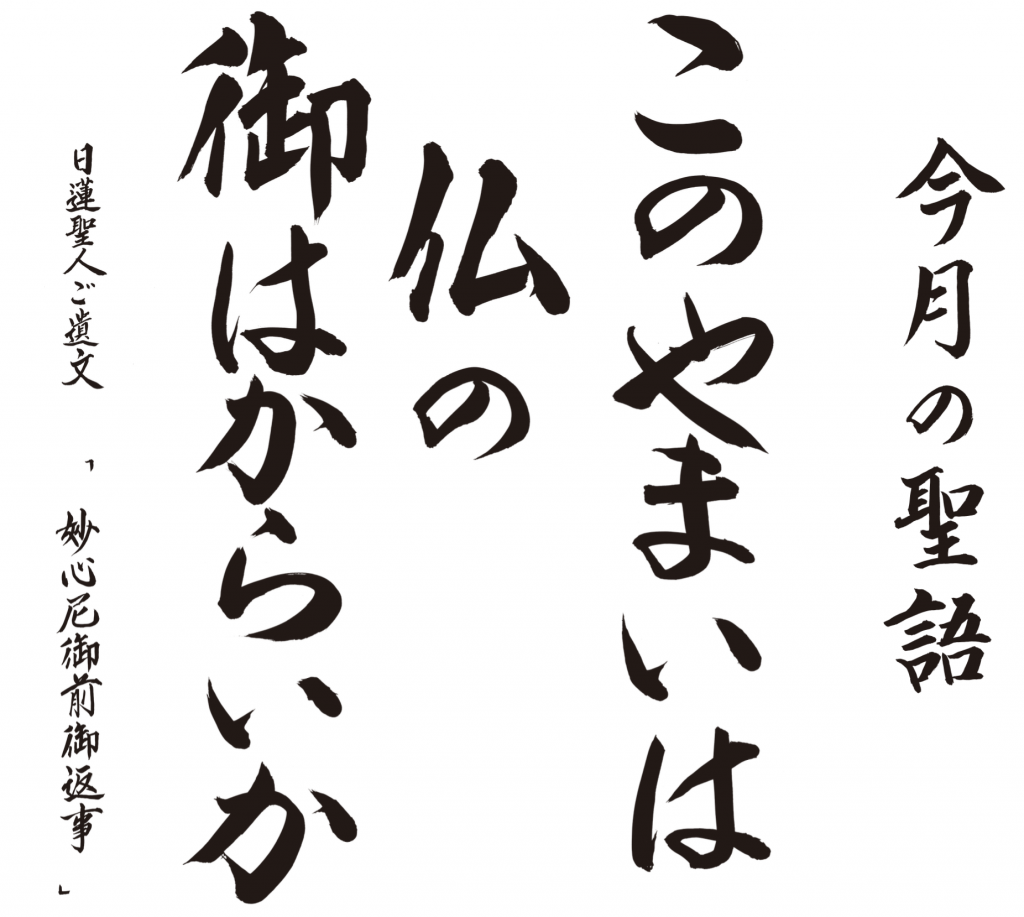 今月の聖語
このやまいは
仏の
御はからいか
日蓮聖人ご遺文 「妙心尼御前御返事」